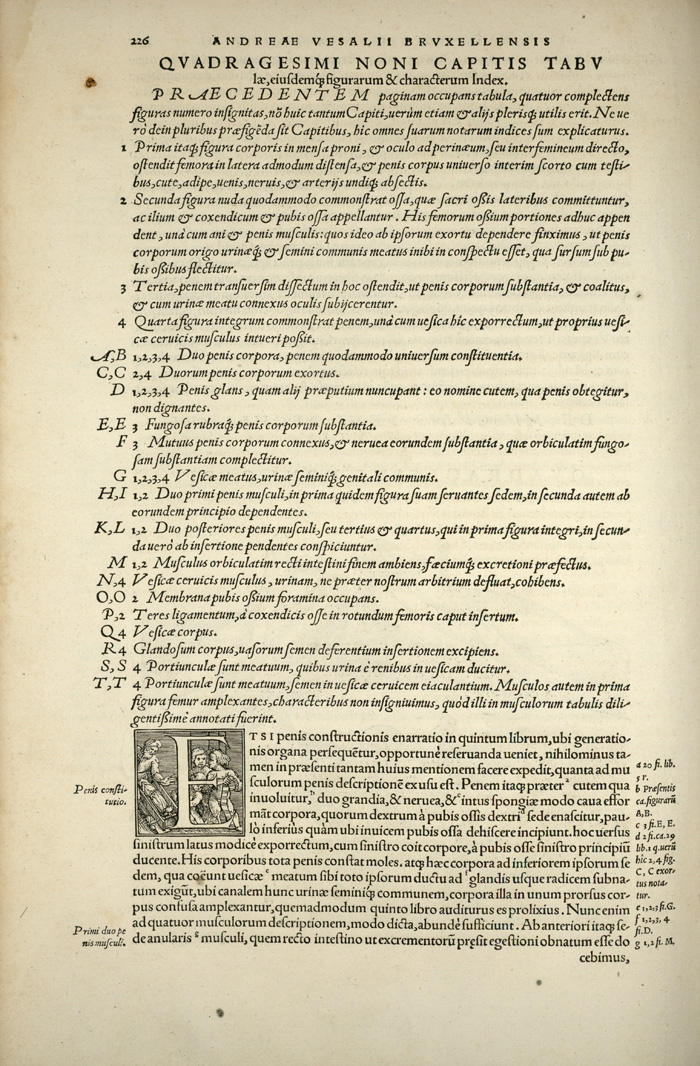 226 ANDREAE VESALII BRVXELLENSIS
QVADRAGESIMI NONI CAPITIS TABV
læ, eiusdemq́; figurarum & characterum Index.
PRAECEDENTEM paginam occupans tabula, quatuor complectens
figuras numero insignitas, nõ huic tantum Capiti, uerùm etiam & alijs plerisq́; utilis erit. Ne ue
rò dein pluribus præfigẽda sit Capitibus, hic omnes suarum notarum indices sum explicaturus.
1 Prima itaq́; figura corporis in mensa proni, & oculo ad perinæum, seu interfemineum directo,
ostendit femora in latera admodum distensa, & penis corpus uniuerso interim scorto cum testi-
bus, cute, adipe, uenis, neruis, & arterijs undiq́; absectis.
2 Secunda figura nuda quodammodo commonstrat ossa, quæ sacri oßis lateribus committuntur,
ac ilium & coxendicum & pubis ossa appellantur. His femorum oßium portiones adhuc appen
dent, unà cum ani & penis musculis: quos ideo ab ipsorum exortu dependere finximus, ut penis
corporum origo urinæq́; & semini communis meatus inibi in conspectu esset, qua sursum sub pu-
bis oßibus flectitur.
3 Tertia, penem transuersim dissectum in hoc ostendit, ut penis corporum substantia, & coalitus,
& cum urinæ meatu connexus oculis subijcerentur.
4 Quarta figura integrum commonstrat penem, unà cum uesica hic exporrectum, ut proprius uesi-
cæ ceruicis musculus intueri poßit.
A,B 1,2,3,4 Duo penis corpora, penem quodammodo uniuersum constituentia.
C,C 2,4 Duorum penis corporum exortus.
D 1,2,3,4 Penis glans, quam alij præputium nuncupant: eo nomine cutem, qua penis obtegitur,
non dignantes.
E,E 3 Fungosa rubraq́; penis corporum substantia.
F 3 Mutuus penis corporum connexus, & neruea eorundem substantia, quæ orbiculatim fungo-
sam substantiam complectitur.
G 1,2,3,4 Vesicæ meatus, urinæ seminiq́; genitali communis.
H,I 1,2 Duo primi penis musculi, in prima quidem figura suam seruantes sedem, in secunda autem ab
eorundem principio dependentes.
K,L 1,2 Duo posteriores penis musculi, seu tertius & quartus, qui in prima figura integri, in secun-
da uerò ab insertione pendentes conspiciuntur.
M 1,2 Musculus orbiculatim recti intestini finem ambiens, fæciumq́; excretioni præfectus.
N,4 Vesicæ ceruicis musculus, urinam, ne præter nostrum arbitrium defluat, cohibens.
O,O 2 Membrana pubis oßium foramina occupans.
P,2 Teres ligamentum, à coxendicis osse in rotundum femoris caput insertum.
Q 4 Vesicæ corpus.
R 4 Glandosum corpus, uasorum semen deferentium insertionem excipiens.
S,S 4 Portiunculæ sunt meatuum, quibus urina è renibus in uesicam ducitur.
T,T 4 Portiunculæ sunt meatuum, semen in uesicæ ceruicem eiaculantium. Musculos autem in prima
figura femur amplexantes, characteribus non insigniuimus, quòd illi in musculorum tabulis dili-
gentißimè annotati fuerint.
ETSI penis constructionis enarratio in quintum librum, ubi generatio-
nis organa persequẽtur, opportunè reseruanda ueniet, nihilominus ta-
men in præsenti tantam huius mentionem facere expedit, quanta ad mu
sculorum penis descriptionẽ ex usu est. Penem itaq; præter ᵃ cutem qua
inuoluitur, ᵇ duo grandia, & neruea, & ᶜ intus spongiæ modo caua effor
mãt corpora, quorum dextrum à pubis ossis dextri ᵈ sede enascitur, pau-
lò inferius quàm ubi inuicem pubis ossa dehiscere incipiunt. hoc uersus
sinistrum latus modicè exporrectum, cum sinistro coit corpore, à pubis osse sinistro principiũ
ducente. His corporibus tota penis constat moles. atq; hæc corpora ad inferiorem ipsorum se
dem, qua coëunt uesicæ ᵉ meatum sibi toto ipsorum ductu ad ᶠ glandis usque radicem subna-
tum exigũt, ubi canalem hunc urinæ seminiq́; communem, corpora illa in unum prorsus cor-
pus confusa amplexantur, quemadmodum quinto libro auditurus es prolixius. Nunc enim
ad quatuor musculorum descriptionem, modo dicta, abundè sufficiunt. Ab anteriori itaq; se-
de anularis ᵍ musculi, quem recto intestino ut excrementorũ præsit egestioni obnatum esse do
cebimus,
Penis consti-
tutio.
Primi duo pe
nis musculi.
a 20 fi. lib.
5 r.
b Præsentis
ca. figurarũ
A,B.
c 3 fi. E, E.
d 2 fi. ca. 29
lib. 1 q. uerũ
hic 2, 4 fig.
C, C exor-
tus nota-
tur.
e 1,2,3 fi. G.
f 1,2,3,4
fi. D.
g 1,2 fi. M.